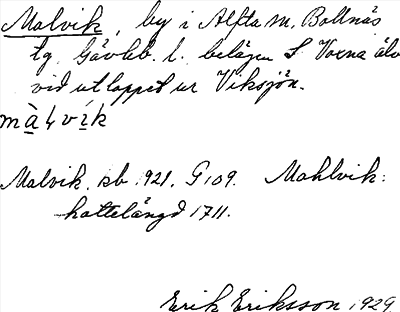 Malvik, by i Alfta m. Bollnäs
tg. Gävleb. l. belägen S Voxna älv
vid utloppet ur Viksjön.
màɬvìk
Malvik. sb 1921. G 109. Mahlvik:
hattelängd 1711.
Erik Eriksson 1929.